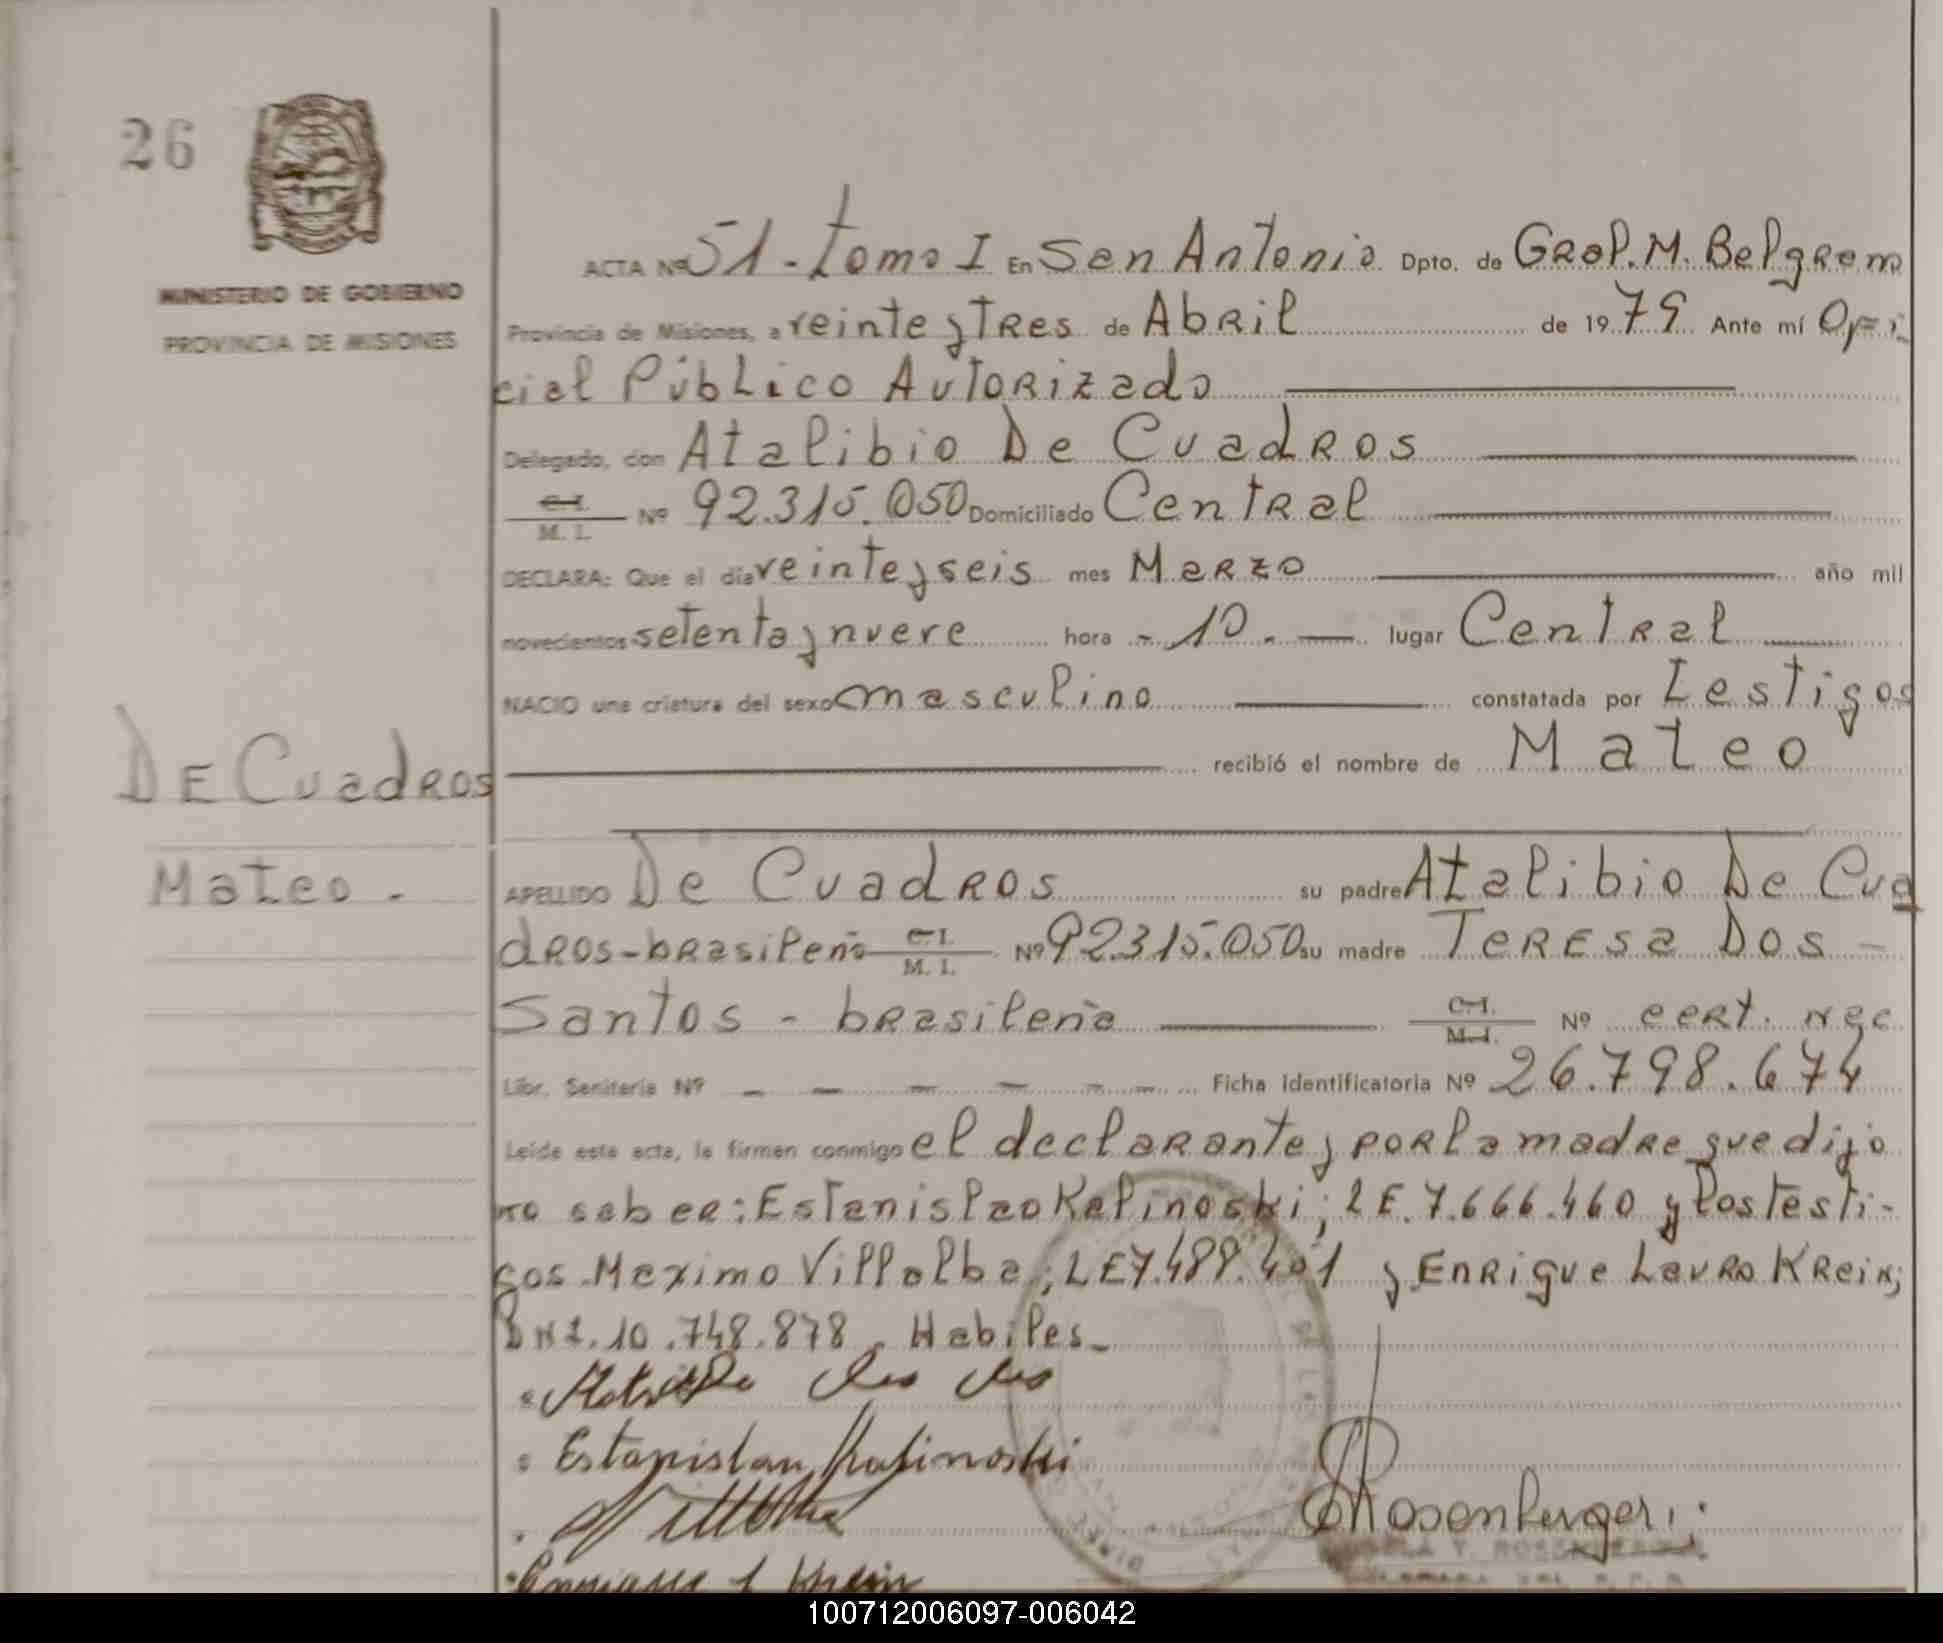 26
MINISTERIO DE GOBIERNO
PROVINCIA DE MISIONES
ACTA Nº 51 - Tomo I En San Antonio Dpto. de Gral. M. Belgrano
Provincia de Misiones, a veinte y tres de Abril de 1979 Ante mí Ofi
cial Público Autorizado
Delegado, don Atalibio De Cuadros
C. I.
M. I. Nº 92.315.050 Domiciliado Central
DECLARA: Que el día veinte y seis mes Marzo año mil
novecientos setenta y nueve hora - 10. - lugar Central
NACIO una criatura del sexo masculino constatada por Testigos
recibió el nombre de Mateo
DE Cuadros
Mateo -
APELLIDO De Cuadros su padre Atalibio De Cua
dros - brasileño C. I. M. I. Nº 92.315.050 su madre Teresa Dos -
Santos - brasileña C. I. M. I. Nº cert. neg
Libr. Sanitaria Nº - - - - - - Ficha Identificatoria Nº 26.798.674
Leída esta acta, la firman conmigo el declarante y por la madre que dijo
no saber: Estanislao Kalinoski; LE. 7.666.460 y los testi-
gos Maximo Villalba; LE 7.488.401 y Enrique Lauro Krein;
DNI. 10.748.878. Habiles -
Estanislau Kalinoski
Villalba
Rosenberger
100712006097-006042